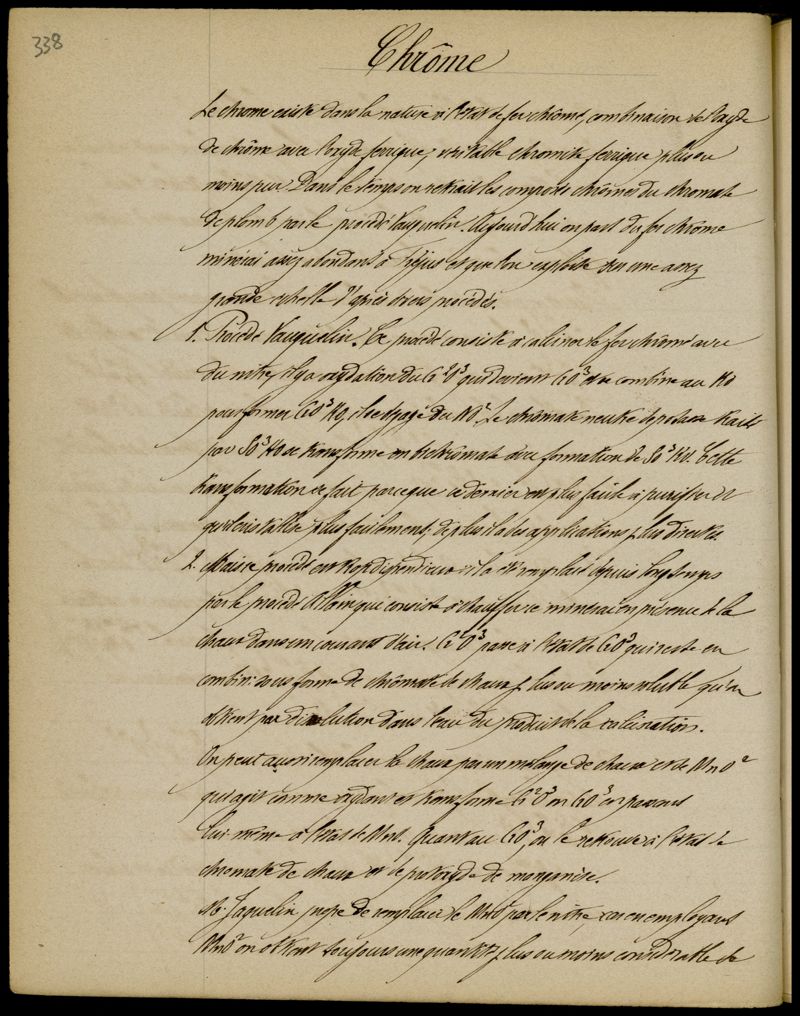 338
Chrôme
Le chrome existe dans la nature à l'état de fer chrômé, combinaison de l'oxyde
de chrôme avec l'oxyde ferrique, véritable chromite ferrique plus ou
moins pur. Dans le temps on retirait les composés chrômés du chromate
de plomb par le procédé Vauquelin. Aujourd'hui on part du fer chrôme
minérai assez abondant à Fréjus et que l'on exploite sur une assez
grande échelle d'après divers procédés.
1. Procédé Vauquelin. Ce procédé consiste à calciner le fer chrômé avec
du nitre, il y a oxydation du Cr²O³ qui devient CrO³ et se combine au KO
pour former CrO³KO, il se dégage du AzO². Le chrômate neutre de potasse traité
par SO³HO se transforme en bichrômate avec formation de SO³KO. Cette
transformation se fait parceque ce dernier est plus facile à purifier et
qu'il cristallise plus facilement; de plus il a des applications plus directes.
2. Mais ce procédé est trop dispendieux et il a été remplacé depuis longtemps
par le procédé qui consiste à chauffer ce minérai en présence de la
chaux dans un courant d'air. Cr²O³ passe à l'état de CrO³ qui reste en
combin: sous forme de chrômate de chaux plus ou moins soluble qu'on
obtient par dissolution dans l'eau du produit de la calcination.
On peut aussi remplacer la chaux par un mélange de chaux et de MnO²
qui agit comme oxydant et transforme Cr²O³ en CrO³ en passant
lui même à l'état de MnO. Quant au CrO³, on le retrouve à l'état de
chromate de chaux et de protoxyde de manganèse.
M. Jaquelin propose de remplacer le MnO² par le nitre, car en employant
MnO² on obtient toujours une quantité plus ou moins considérable de